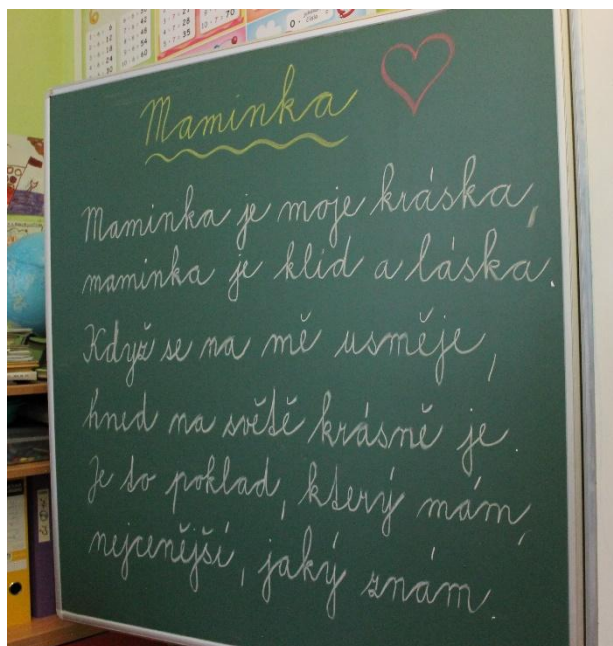 Maminka
Maminka je moje kráska,
maminka je klid a láska.
Když se na mě usměje,
hned na světě krásně je.
Je to poklad, který mám,
nejcenější, jaký znám.